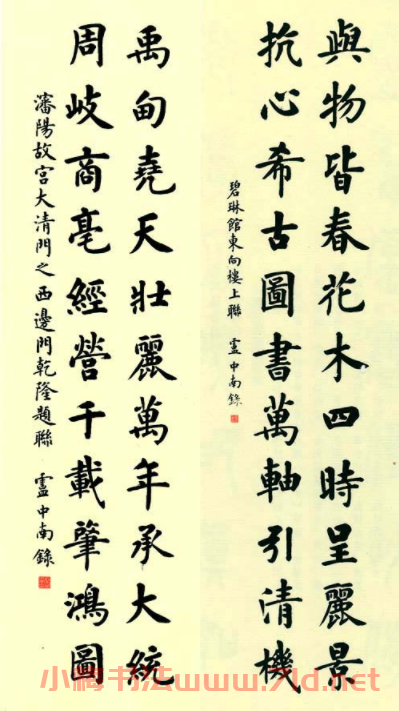 與物皆春花木四時呈麗景
抗心希古圖書萬軸引清機
碧琳館東向樓上聯 盧中南錄
禹甸堯天壯麗萬年承大統
周岐商亳經營千載肇鴻圖
瀋陽故宮大清門之西邊門乾隆題聯 盧中南錄
小梅书法www.7ld.net